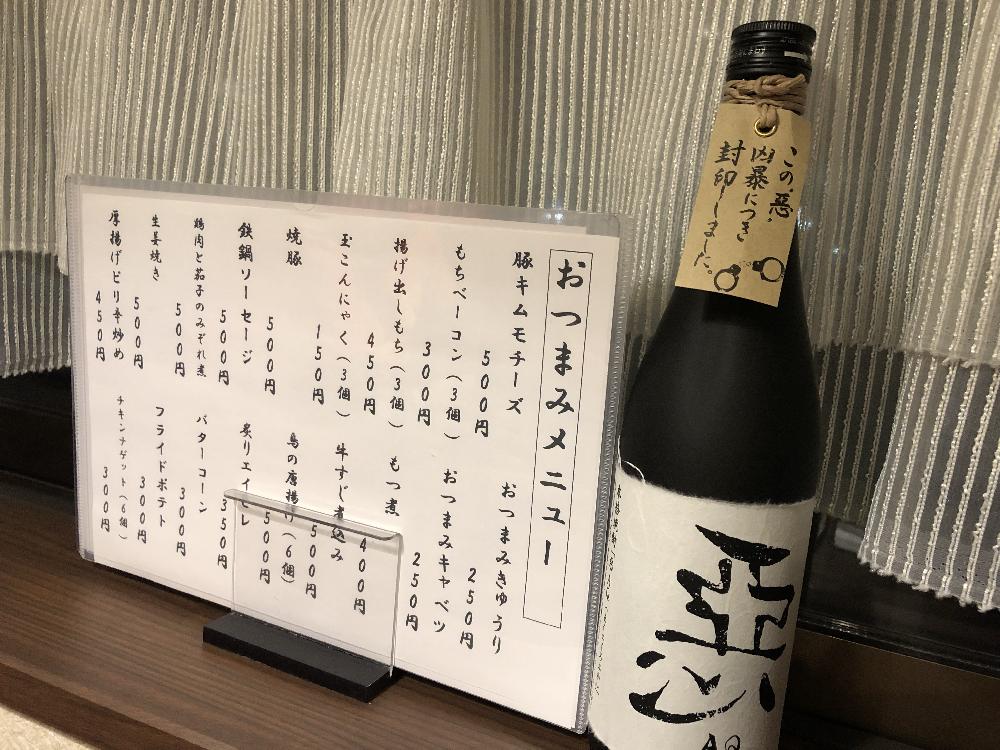 おつまみメニュー
豚キムモチーズ
500円
おつまみきゅうり
250円
もちベーコン(3個)
300円
おつまみキャベツ
250円
揚げ出しもち(3個)
450円
もつ煮
400円
玉こんにゃく(3個)
150円
牛すじ煮込み
500円
焼豚
500円
鳥の唐揚げ(6個)
500円
鉄鍋ソーセージ
500円
炙りエイヒレ
350円
鶏肉と茄子のみぞれ煮
500円
バターコーン
300円
生姜焼き
500円
フライドポテト
300円
厚揚げピリ辛炒め
450円
チキンナゲット(6個)
300円
この、惡、
凶暴につき
封印しました。
惡